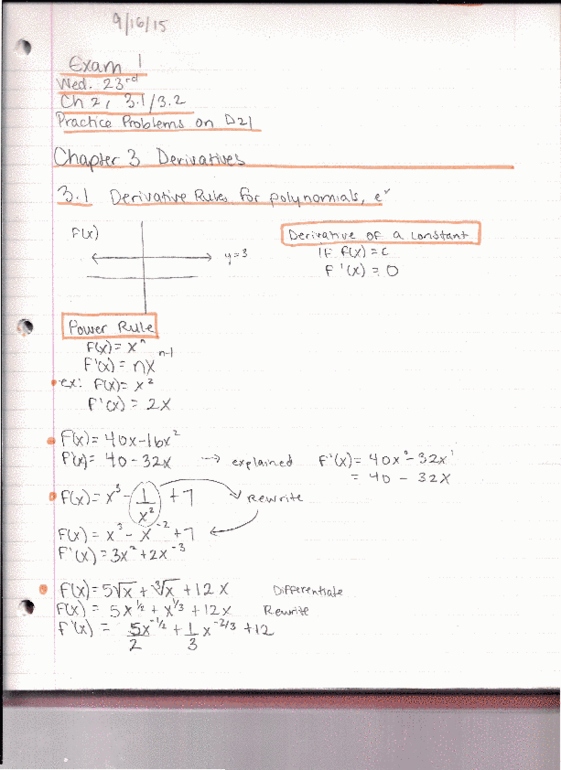 9/16/15
Exam 1
Wed. 23rd
Ch 2, 3.1/3.2
Practice Problems on D2L
Chapter 3 Derivatives
3.1 Derivative Rules for polynomials, eˣ
F(x)
y=3
Derivative of a constant
If f(x) = c
F'(x) = 0
Power Rule
F(x) = xⁿ
F'(x) = nxⁿ⁻¹
ex: F(x) = x²
F'(x) = 2x
F(x) = 40x-16x²
F'(x) = 40-32x → explained F'(x) = 40x⁰-32x¹
= 40 - 32x
F(x) = x³ - 1/x² + 7 Rewrite
F(x) = x³ - x⁻² + 7
F'(x) = 3x² + 2x⁻³
F(x) = 5√x + ∛x + 12x Differentiate
F(x) = 5x^1/2 + x^1/3 + 12x Rewrite
F'(x) = 5/2 x^-1/2 + 1/3 x^-2/3 + 12